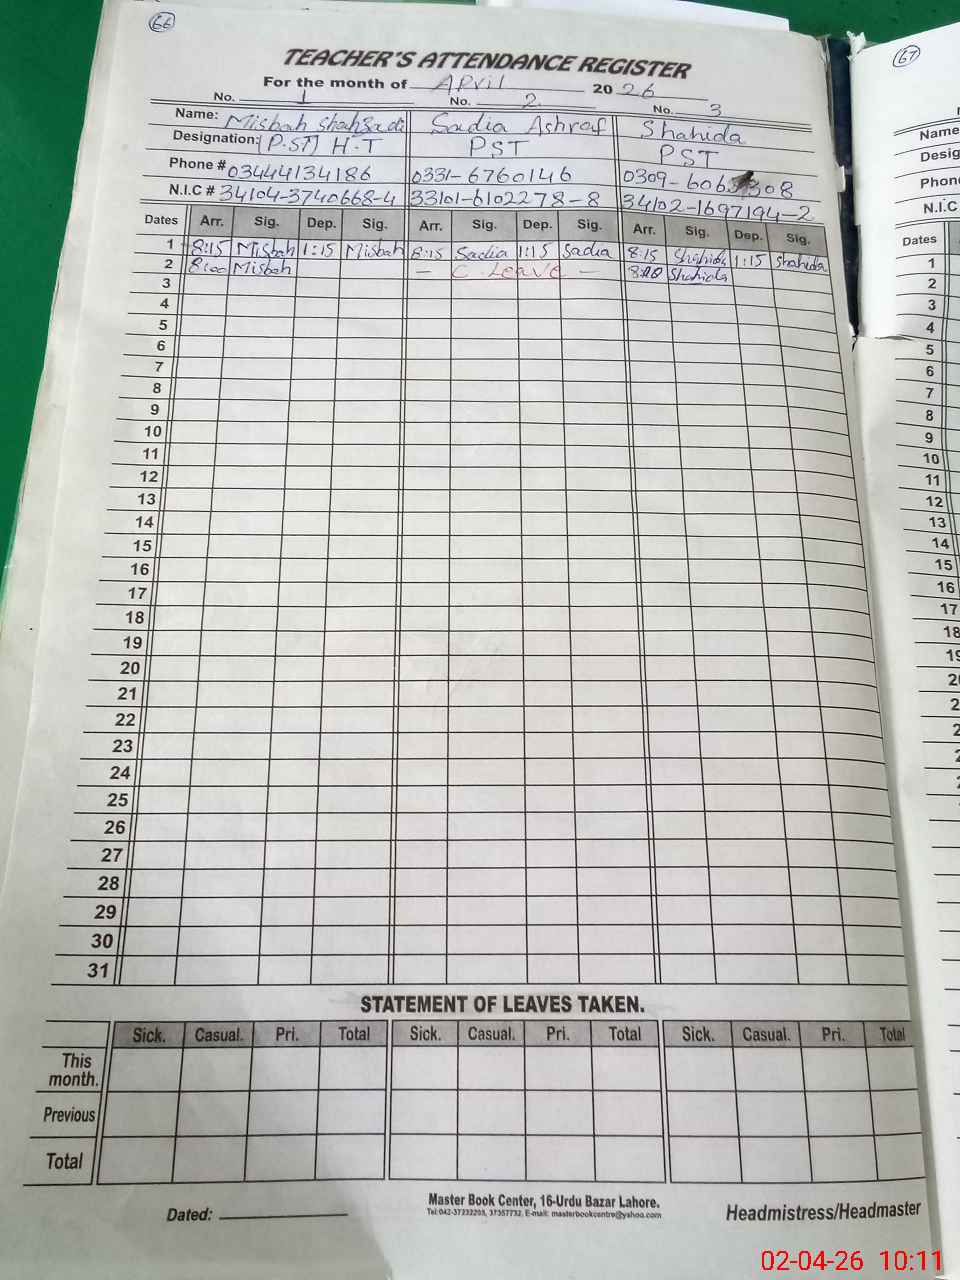 66
TEACHER'S ATTENDANCE REGISTER
For the month of April 2026
No. 1 No. 2 No. 3
Name: Misbah Shahzadi Sadia Ashraf Shahida
Designation: (P.ST) H.T PST PST
Phone # 03444134186 0331-6760146 0309-606 308
N.I.C # 34104-3740668-4 33101-6102278-8 34102-1697194-2
Dates Arr. Sig. Dep. Sig. Arr. Sig. Dep. Sig. Arr. Sig. Dep. Sig.
1 8:15 Misbah 1:15 Misbah 8:15 Sadia 1:15 Sadia 8:15 Shahida 1:15 Shahida
2 8:00 Misbah - C. Leave - Shahida
3
4
5
6
7
8
9
10
11
12
13
14
15
16
17
18
19
20
21
22
23
24
25
26
27
28
29
30
31
STATEMENT OF LEAVES TAKEN.
Sick. Casual. Pri. Total Sick. Casual. Pri. Total Sick. Casual. Pri. Total
This month.
Previous
Total
Dated:
Master Book Center, 16-Urdu Bazar Lahore.
Tel:042-37232205, 37357732. E-mail: masterbookcentre@yahoo.com
Headmistress/Headmaster
67
Name
Desig
Phon
N.I.C
Dates
1
2
3
4
5
6
7
8
9
10
11
12
13
14
15
16
17
02-04-26 10:11